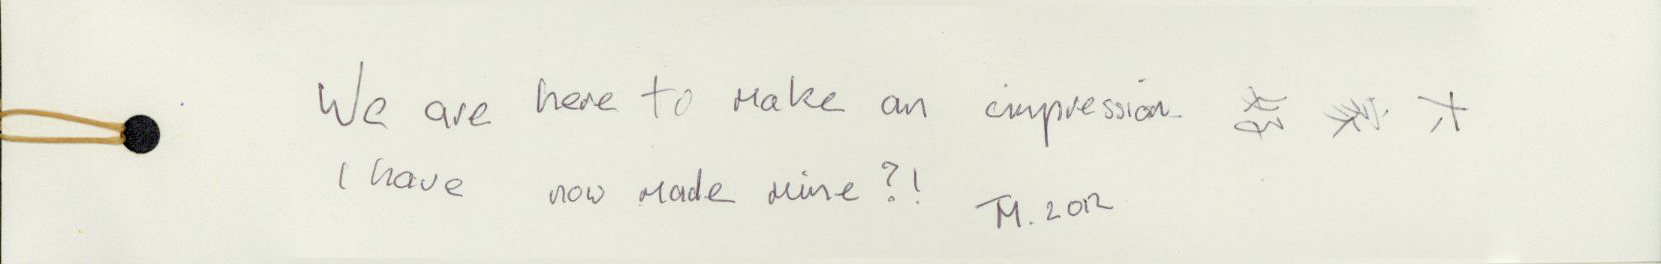 We are here to make an impression
I have now made mine?! TM. 2012